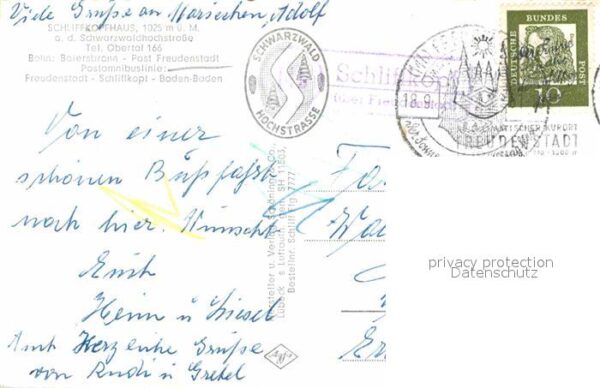 Viele Grüße an Mariechen, Adolf
SCHLIFFKOPFHAUS, 1025 m ü. M.
a. d. Schwarzwaldhochstraße
Tel. Obertal 166
Bahn: Baiersbronn - Post Freudenstadt
Postomnibuslinie:
Freudenstadt - Schliffkopf - Baden-Baden
SCHWARZWALD
HOCHSTRASSE
Schliffkopf
über Freudenstadt
18.9.
DEUTSCHE BUNDESPOST
10
KLIMATISCHER KURORT
FREUDENSTADT
Von einer
schönen Busfahrt
nach hier. Wünscht
Euch
Heini u Liesel
Auch Herzliche Grüße
von Rudi u Gretel
Hersteller u. Verlag Schöning & Co.,
Lübeck
Bestellnr. Schliff Ftg 7777
Agfa
privacy protection
Datenschutz